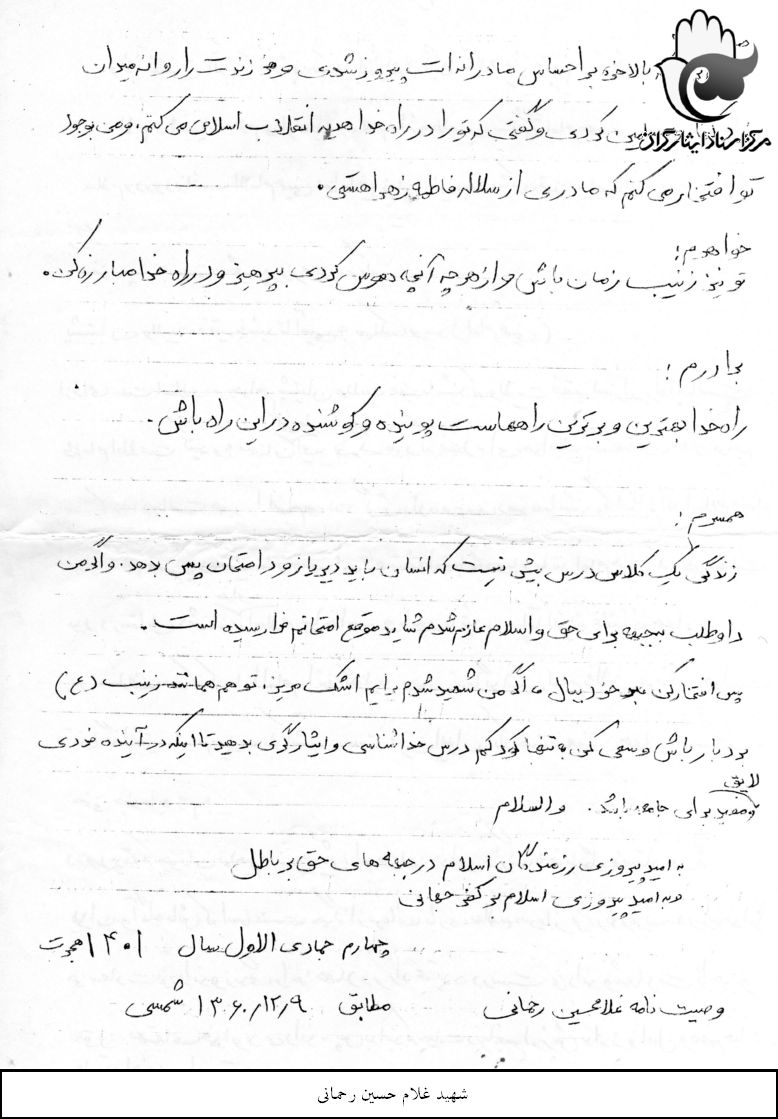 بالاخره بر احساس مادرانه ات پیروز شدی و فرزندت را روانه میدان
کردی و گفتی که تو را در راه خدا هدیه انقلاب اسلامی می کنم، و من بوجود
مرکز اسناد ایثارگران
تو افتخار می کنم که مادری از سلاله فاطمه زهرا هستی.
خواهرم:
تو نیز زینب زمان باش و از هر چه آنچه هوس کردی بپرهیز و در راه خدا مبارزه کن.
برادرم:
راه خدا بهترین و برترین راههاست پوینده و کوشنده در این راه باش.
همسرم:
زندگی یک کلاس درس بیش نیست که انسان باید دیر یا زود امتحان پس بدهد. و اگر من
داوطلب جبهه برای حق و اسلام عازم شدم شاید موقع امتحانم فرا رسیده است.
پس افتخار کن و بر خود ببال و اگر من شهید شدم برایم اشک مریز، تو هم همانند زینب (ع)
بردبار باش و سعی کن به تنها کودکم درس خداشناسی و ایثارگری بدهید تا اینکه در آینده فردی
لایق
و مفید برای جامعه باشد. والسلام
به امید پیروزی رزمندگان اسلام در جبهه های حق بر باطل
و به امید پیروزی اسلام بر کفر جهانی
چهارم جمادی الاول سال ۱۴۰۱ هجرت
وصیت نامه غلامحسین رحمانی مطابق ۱۳۶۰/۱۲/۹ شمسی
شهید غلام حسین رحمانی